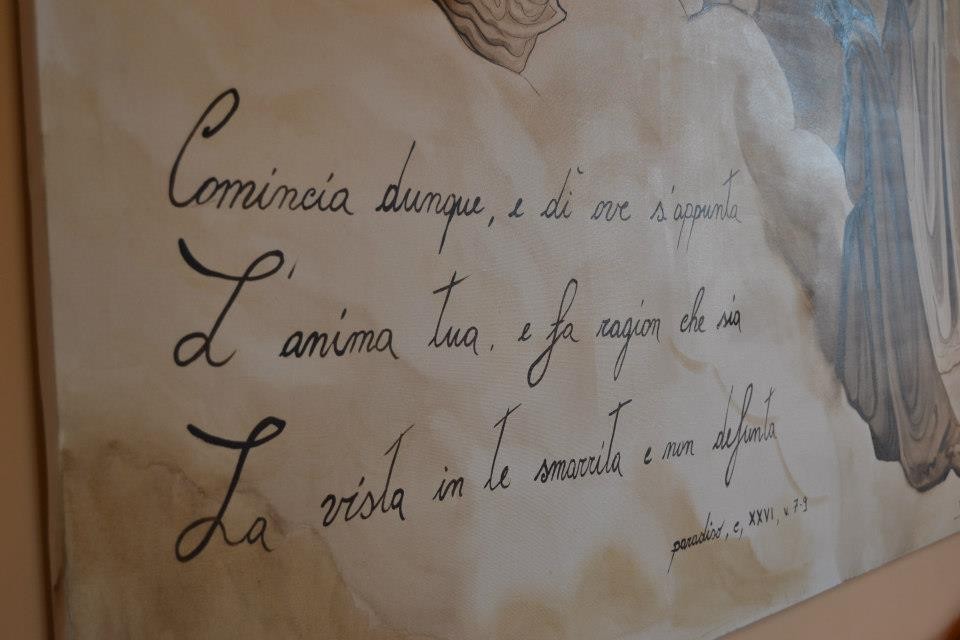 Comincia dunque, e dì ove s'appunta
L'anima tua, e fa ragion che sia
La vista in te smarrita e non defunta
paradiso, c, XXVI, v. 7-9